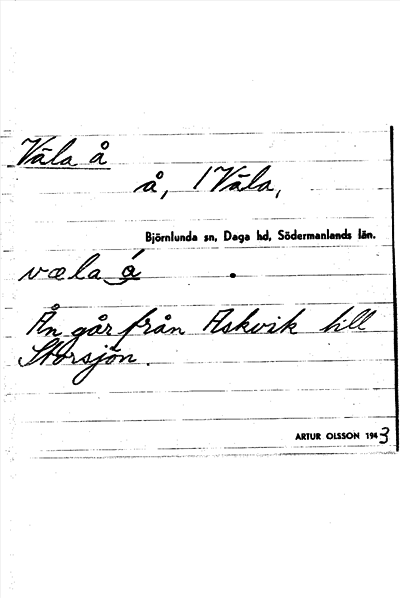 Väla å
å, 1 Väla,
Björnlunda sn, Daga hd, Södermanlands län.
væla å
Ån går från Askvik till
Storsjön.
ARTUR OLSSON 1943